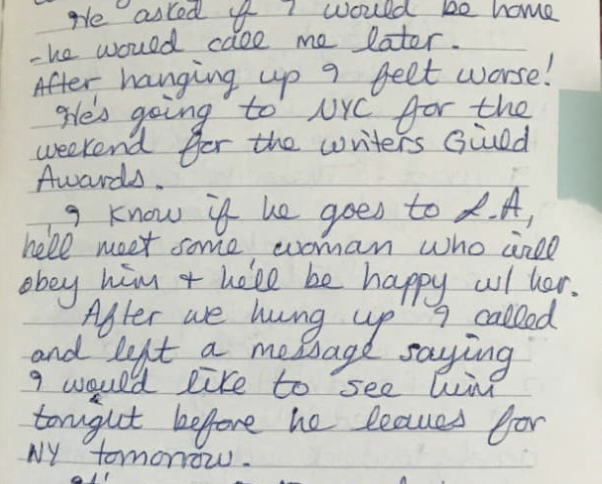 He asked if I would be home
-he would call me later.
After hanging up I felt worse!
He's going to NYC for the
weekend for the writers Guild
Awards.
I know if he goes to L.A,
he'll meet some woman who will
obey him + he'll be happy w/ her.
After we hung up I called
and left a message saying
I would like to see him
tonight before he leaves for
NY tomorrow.